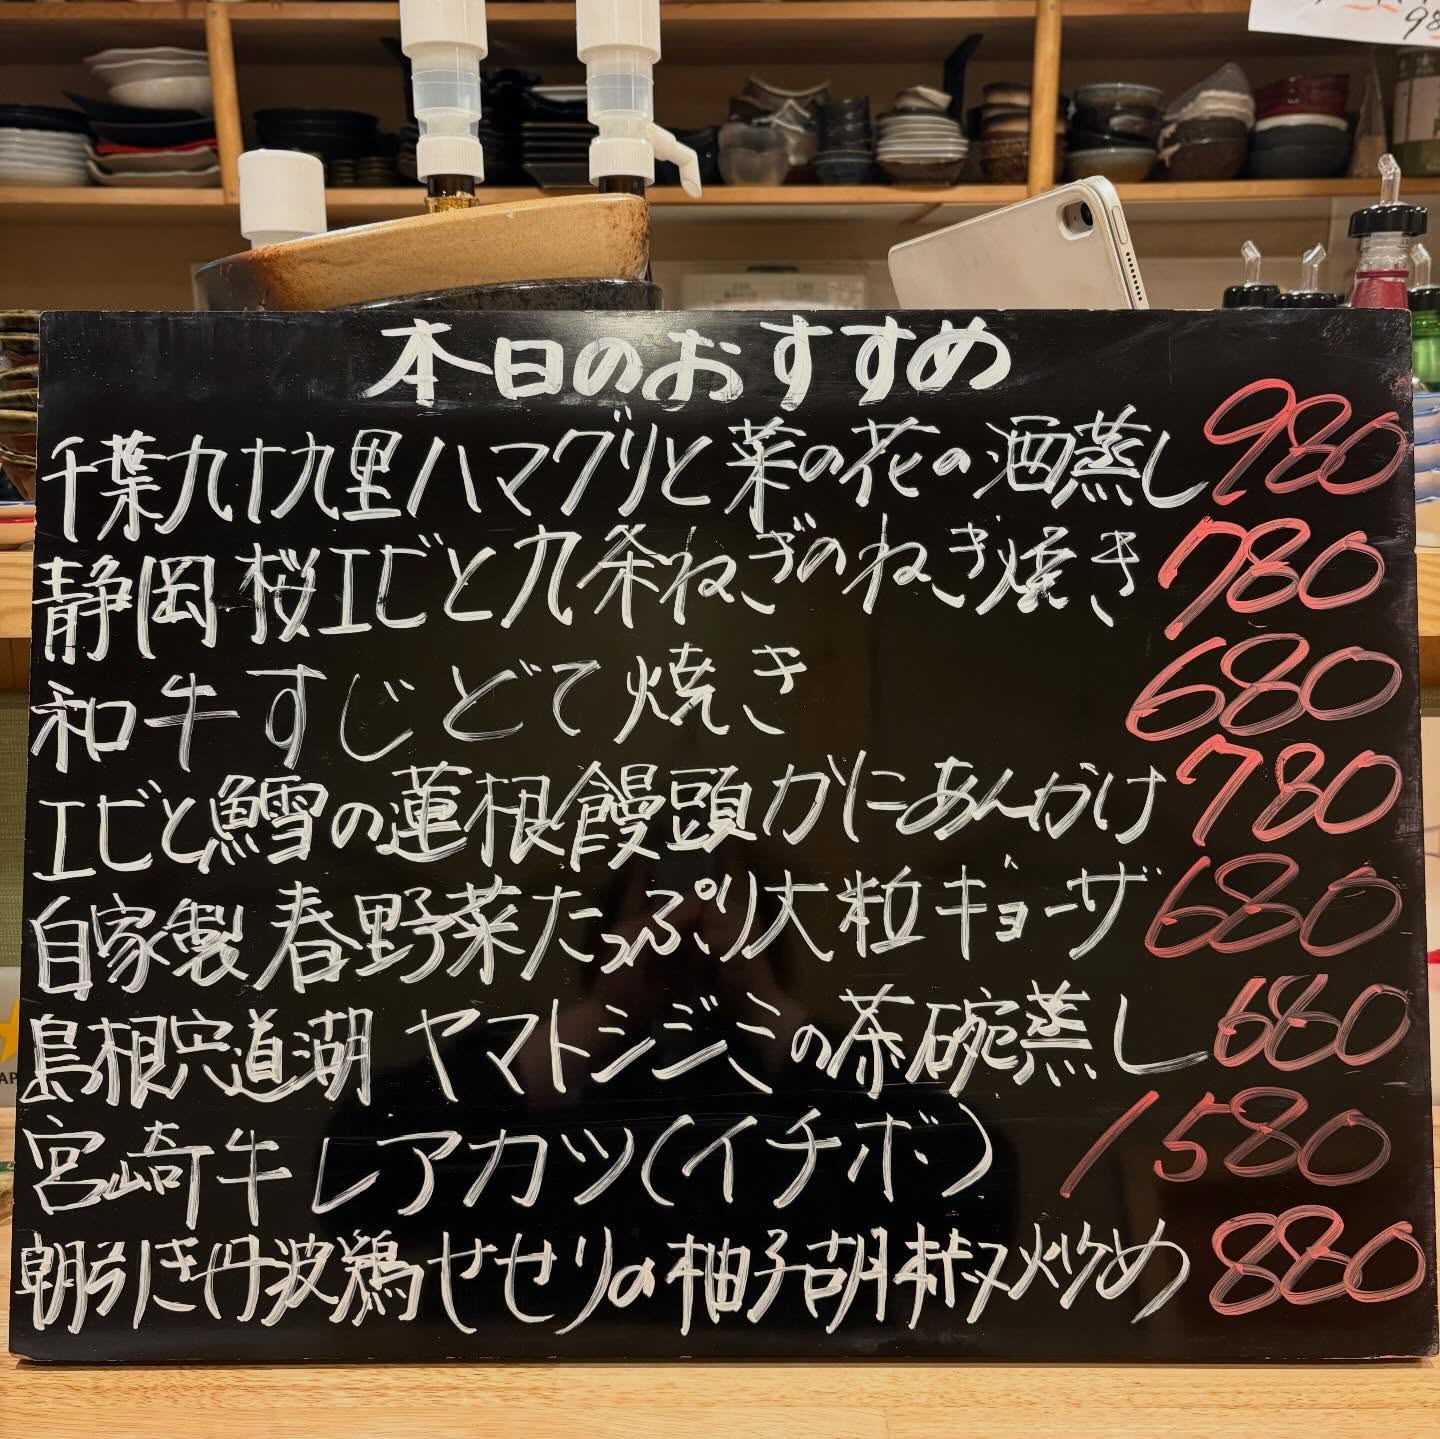 本日のおすすめ
千葉九十九里ハマグリと菜の花の酒蒸し 980
静岡 桜エビと九条ねぎのねぎ焼き 780
和牛すじどて焼き 680
エビと鱈の蓮根饅頭かにあんかけ 780
自家製 春野菜たっぷり大粒ギョーザ 680
島根宍道湖 ヤマトシジミの茶碗蒸し 680
宮崎牛レアカツ(イチボ) 1580
朝引き丹波鶏せせりの柚子胡椒炒め 880